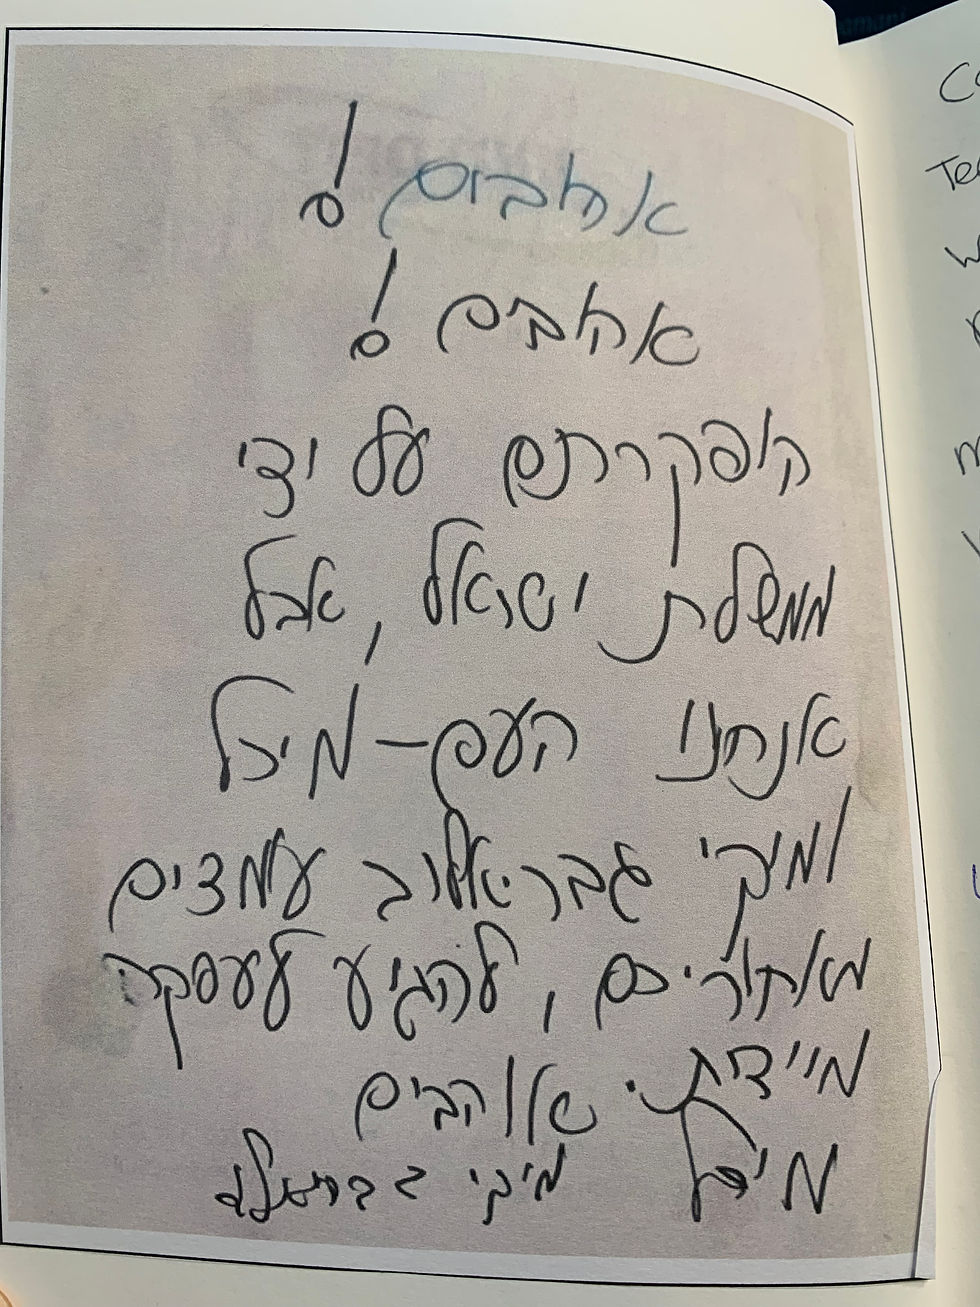 אהובים!
אהובים!
הופקרתם על ידי
ממשלת ישראל, אבל
אנחנו העם - מיכל
ומיקי גבריאלוב עומדים
מאחוריכם, להגיע לעסקה
מיידית. אוהבים
מיכל מיקי גבריאלוב